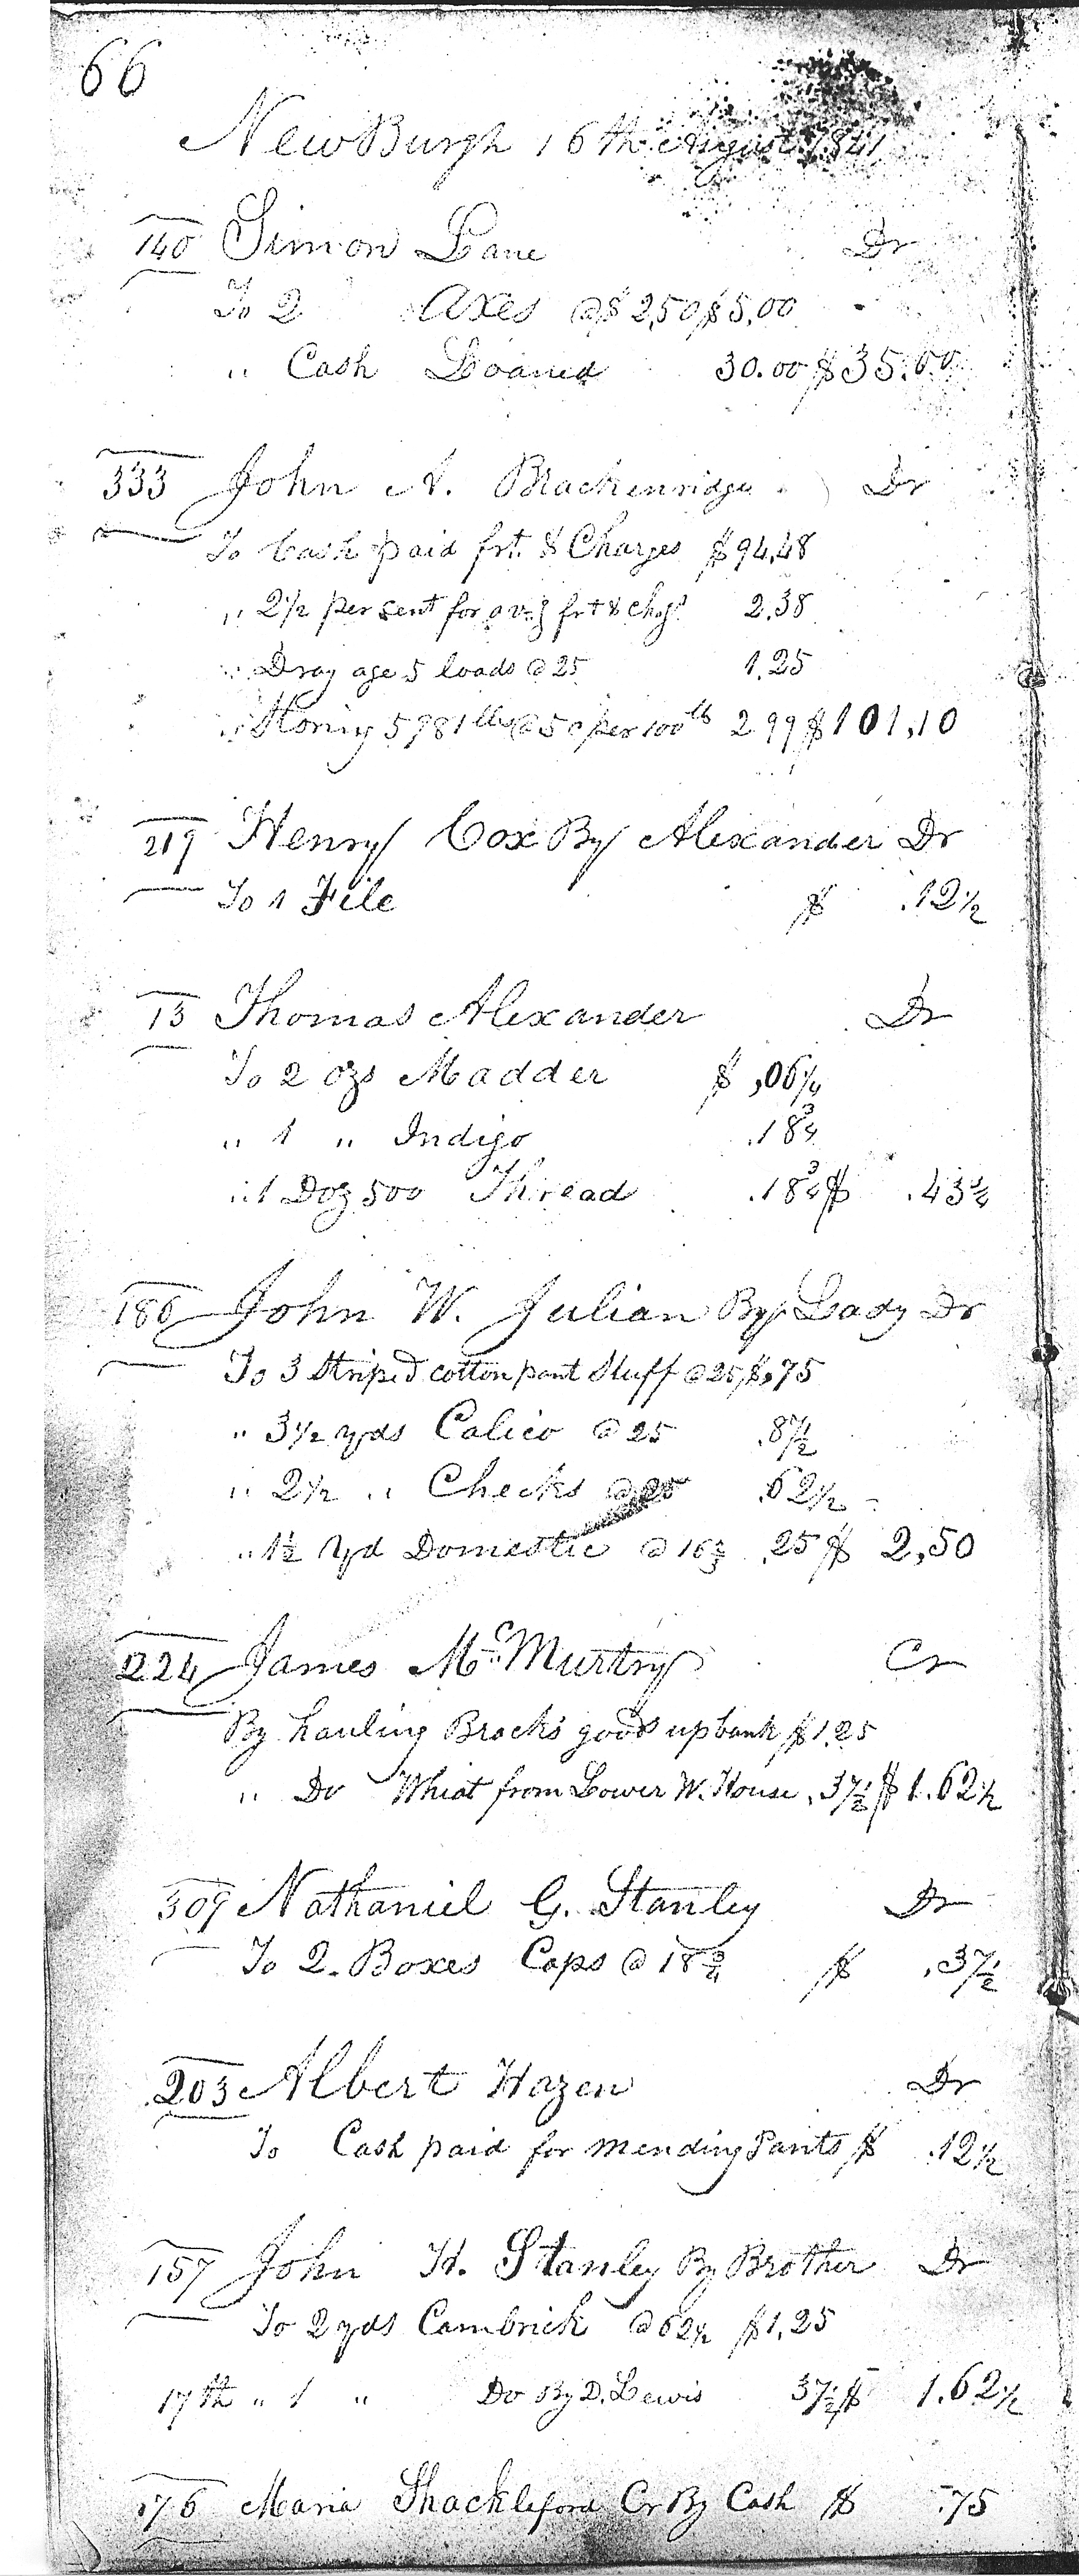 66
NewBurgh 16th August 1841
140 Simon Lane Dr
To 2 Axes @ $2,50 $5,00
" Cash Loaned 30.00 $35.00
333 John A. Brackenridge Dr
To Cash paid frt. & Charges $94,48
" 2½ per sent for avg frt & chgs 2.38
" Dray age 5 loads @ 25 1.25
" Storing 5981 lbs @ 5 c per 100 lb 2.99 $101,10
219 Henry Cox By Alexander Dr
To 1 File $ .12½
13 Thomas Alexander Dr
To 2 ozs Madder $ ,06¼
" 1 " Indigo .18¾
" 1 Doz 500 Thread .18¾ $ .43¾
186 John W. Julian By Lady Dr
To 3 Striped cotton pant Stuff @ 25 $,75
" 3½ yds Calico @ 25 .87½
" 2½ " Checks @ 25 .62½
" 1½ Yd Domestic @ 16⅔ .25 $ 2,50
224 James McMurtry Cr
By hauling Brack's goods up bank $1.25
" Do Wheat from Lower W. House .37½ $1.62½
309 Nathaniel G. Stanley Dr
To 2 Boxes Caps @ 18¾ $ .37½
203 Albert Hazen Dr
To Cash paid for mending Pants $ .12½
157 John H. Stanley By Brother Dr
To 2 yds Cambrick @ 62½ $1,25
17th " 1 " Do By D. Lewis 37½ $ 1.62½
176 Maria Shackleford Cr By Cash $ .75